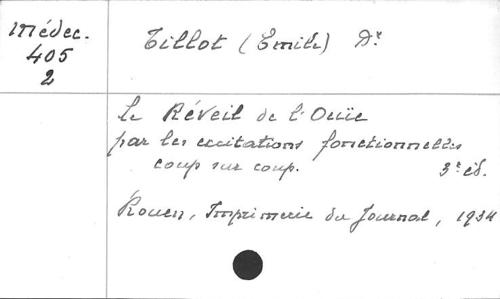 Médec.
405
2
Tillot (Emile) Dr
Le Réveil de l'Ouïe
par les excitations fonctionnelles
coup sur coup. 3e éd.
Rouen, Imprimerie du Journal, 1934